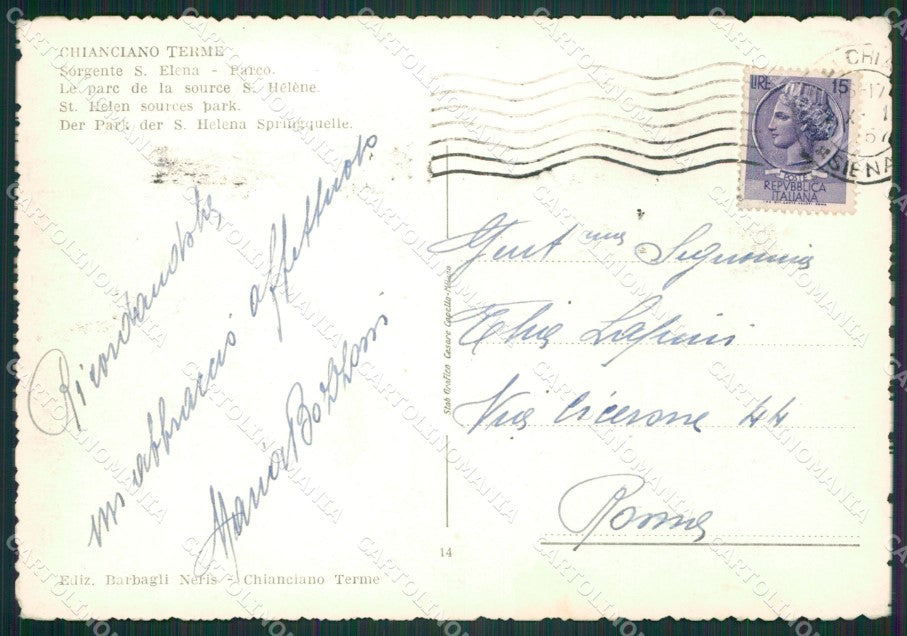 CHIANCIANO TERME
Sorgente S. Elena - Parco.
Le parc de la source S. Hélène.
St. Helen sources park.
Der Park der S. Helena Springquelle.
LIRE 15
POSTE
REPVBBLICA
ITALIANA
SIENA
Ricordandola
un abbraccio affettuoso
Maria Bozzoni
Stab. Grafico Cesare Capello - Milano
Gent ma Signorina
Via Cicerone 44
Roma
14
Ediz. Barbagli Neris - Chianciano Terme
CARTOLINOMANIA